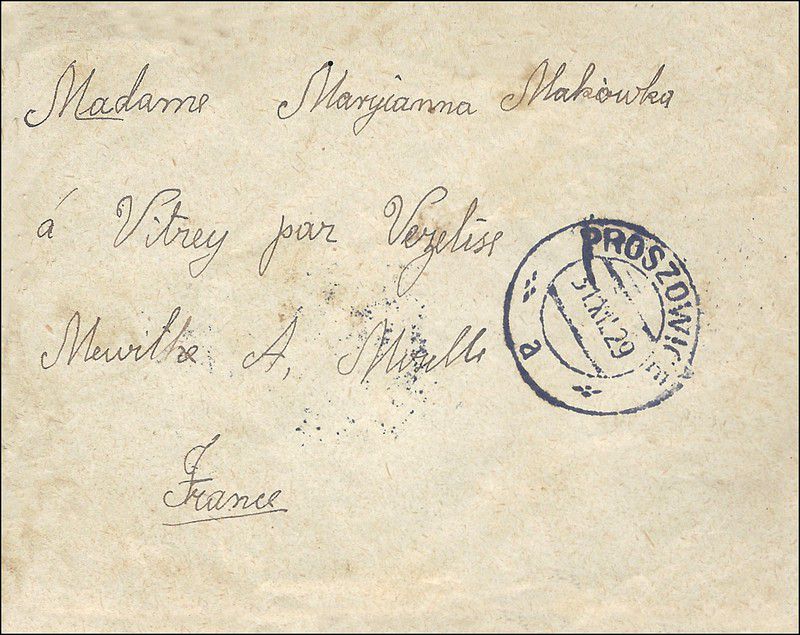 Madame Maryianna Makówka
á Vitrey par Vezelise
Meurthe A, Moselle
France
PROSZOWIC
31.XII.29
a